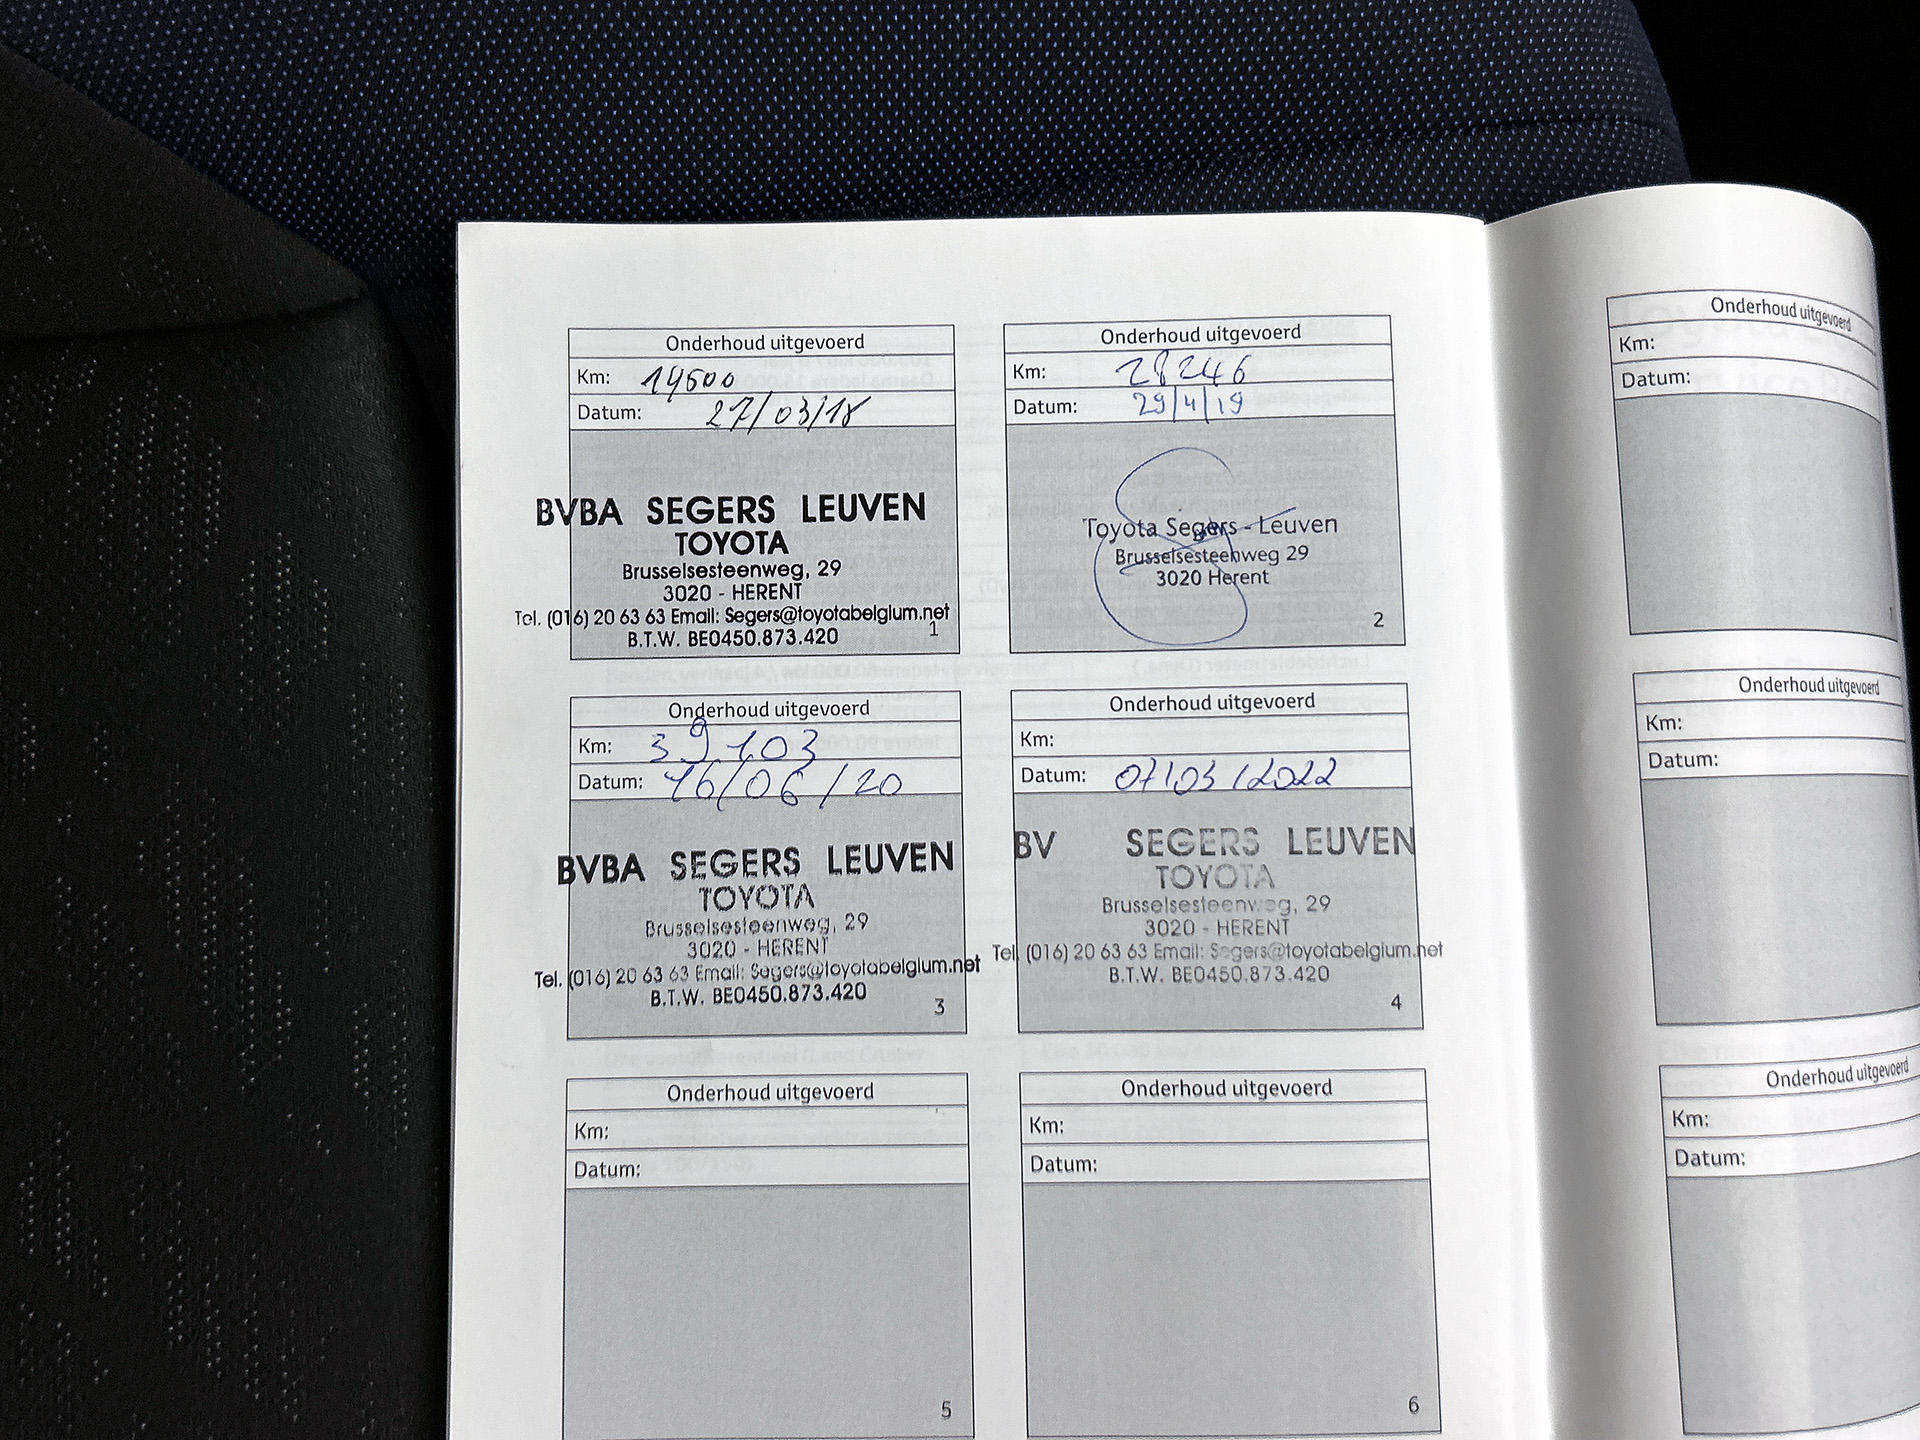 Onderhoud uitgevoerd
Km: 14600
Datum: 27/03/18
BVBA SEGERS LEUVEN
TOYOTA
Brusselsesteenweg, 29
3020 - HERENT
Tel. (016) 20 63 63 Email: Segers@toyotabelgium.net
B.T.W. BE0450.873.420
1
Onderhoud uitgevoerd
Km: 28246
Datum: 29/4/19
Toyota Segers - Leuven
Brusselsesteenweg 29
3020 Herent
2
Onderhoud uitgevoerd
Km: 39103
Datum: 16/06/20
BVBA SEGERS LEUVEN
TOYOTA
Brusselsesteenweg, 29
3020 - HERENT
Tel. (016) 20 63 63 Email: Segers@toyotabelgium.net
B.T.W. BE0450.873.420
3
Onderhoud uitgevoerd
Km:
Datum: 07/03/2022
BV SEGERS LEUVEN
TOYOTA
Brusselsesteenweg, 29
3020 - HERENT
Tel. (016) 20 63 63 Email: Segers@toyotabelgium.net
B.T.W. BE0450.873.420
4
Onderhoud uitgevoerd
Km:
Datum:
5
Onderhoud uitgevoerd
Km:
Datum:
6
Onderhoud uitgevoerd
Km:
Datum:
Onderhoud uitgevoerd
Km:
Datum:
Onderhoud uitgevoerd
Km:
Datum: